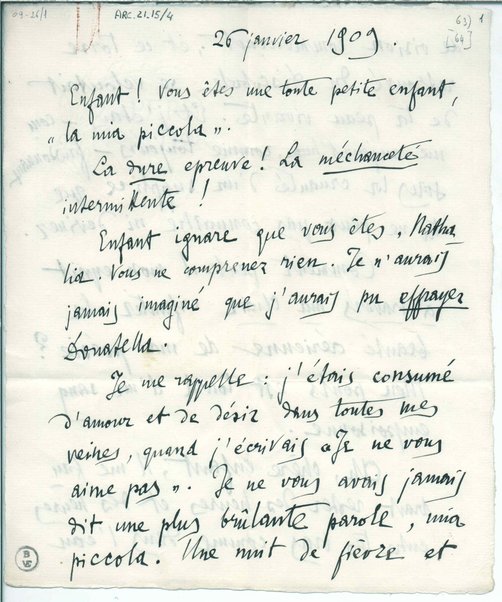 09-26/1
ARC.21.15/4
63) 1
[64]
26 janvier 1909.
Enfant! Vous êtes une toute petite enfant,
"la mia piccola".
La dure epreuve! La méchanceté
intermittente!
Enfant ignare que vous êtes, Natha
lia. Vous ne comprenez rien. Je n'aurais
jamais imaginé que j'aurais pu effrayer
Donatella.
Je me rappelle: j'étais consumé
d'amour et de désir dans toutes mes
veines, quand j'écrivais "Je ne vous
aime pas". Je ne vous avais jamais
dit une plus brûlante parole, mia
piccola. Une nuit de fièvre et